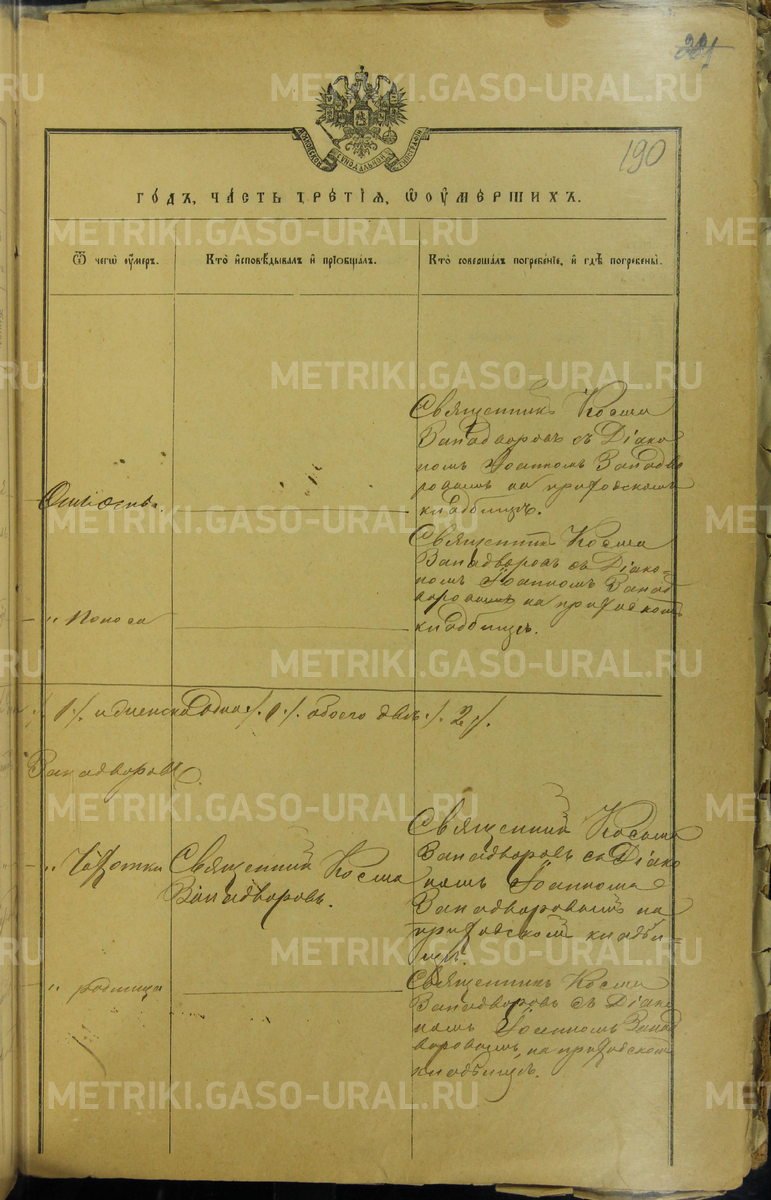 190
ГОДЪ, ЧАСТЬ ТРЕТІЯ, Ѡ ОУМЕРШИХЪ.
Ѿ чегѡ оумеръ.
Кто исповѣдывалъ и пріобщалъ.
Кто совершалъ погребеніе, и гдѣ погребены.
Священникъ Косма
Западворовъ съ Діако
номъ Іоанномъ Западво
ровымъ на приходскомъ
кладбищѣ.
Священникъ Косма
Западворовъ съ Діако-
номъ Іоанномъ Запад
воровымъ на приходскомъ
кладбищѣ.
„ Поноса
1 ./. и женска одна ./. 1 ./. обоего два ./. 2 ./.
Западворовъ.
„ Чахотки
Священникъ Косма
Западворовъ.
Священникъ Косьма
Западворовъ съ Діако
номъ Іоанномъ
Западворовымъ на
приходском кладби-
щѣ.
„ родимца
Священникъ Косма
Западворовъ съ Діако
номъ Іоанномъ Запад
воровымъ на приходскомъ
кладбищѣ.
METRIKI.GASO-URAL.RU